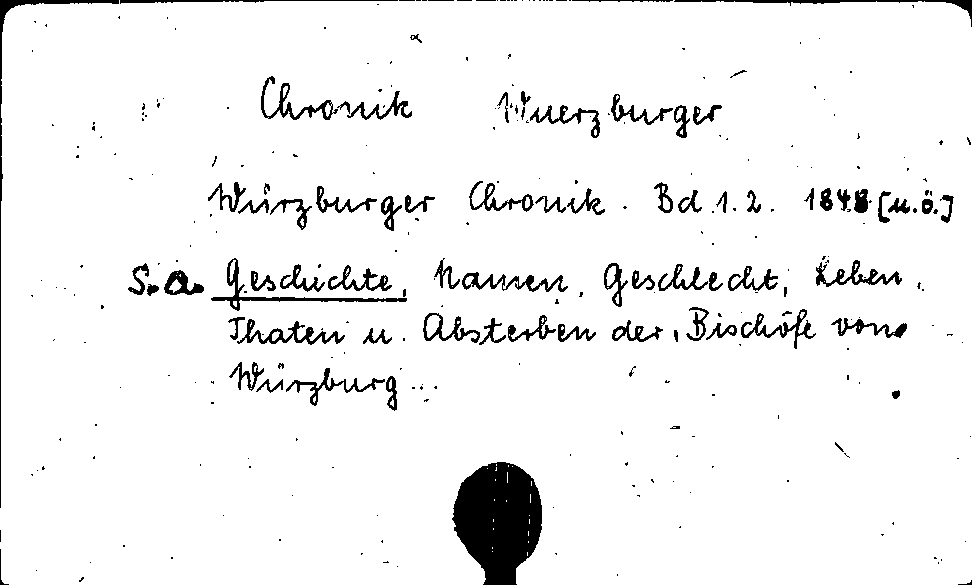 Chronik Wuerzburger
Würzburger Chronik. Bd 1.2. 1848 [u.ö.]
S.a. Geschichte, Namen, Geschlecht, Leben,
Thaten u. Absterben der Bischöfe von
Würzburg...